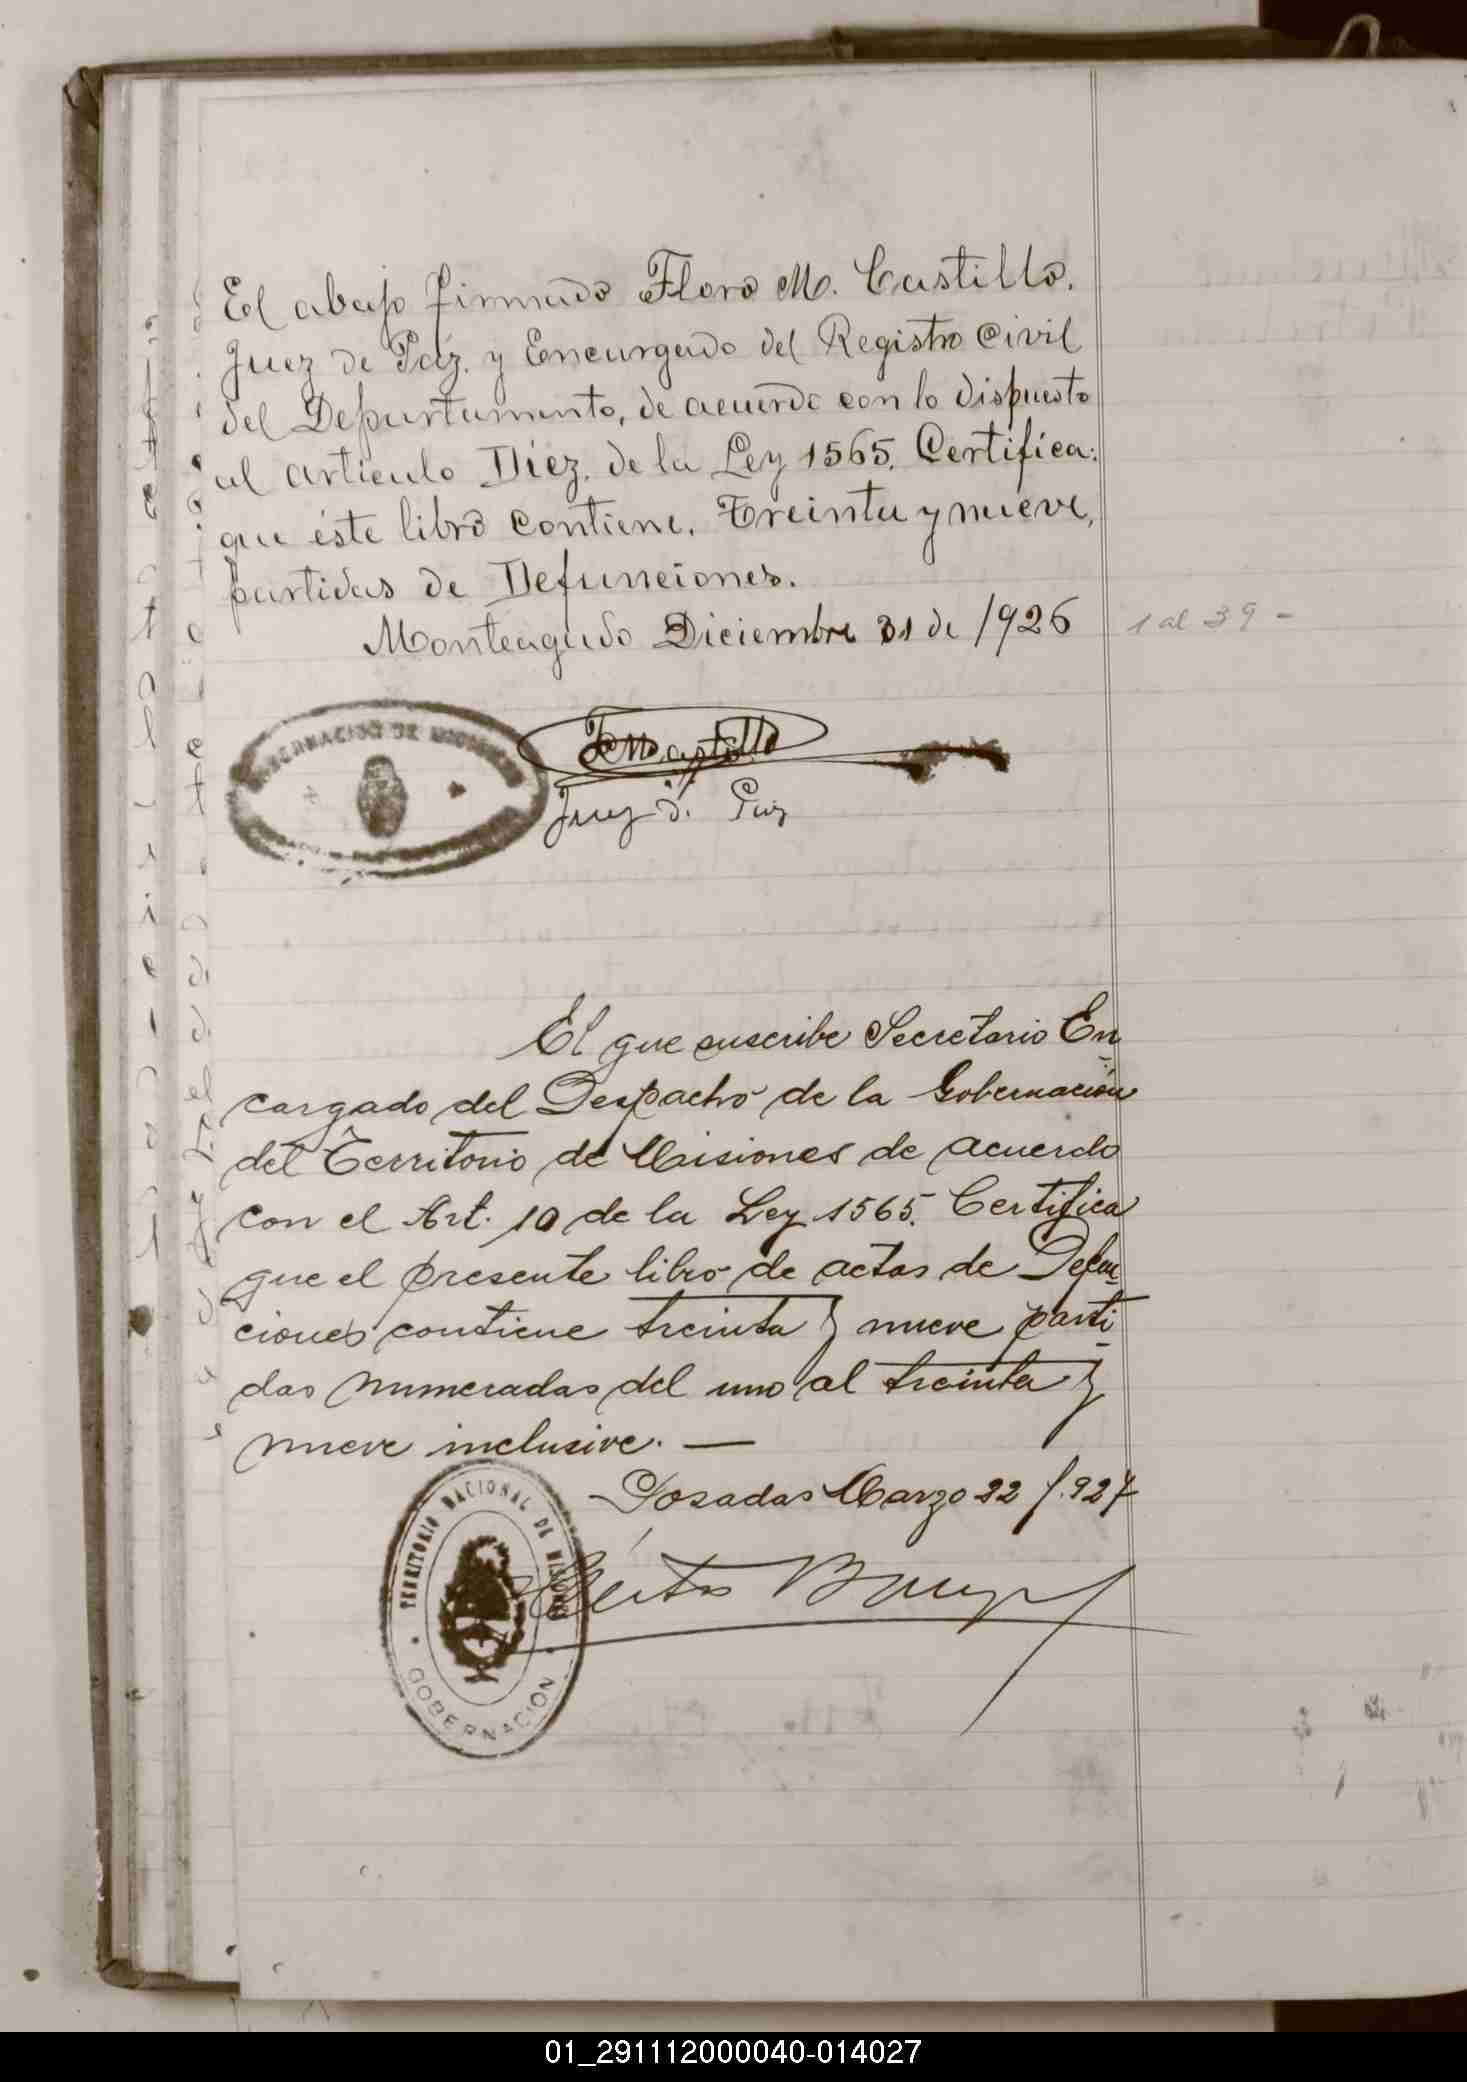 El abajo firmado Floro M. Castillo.
Juez de Paz. y Encargado del Registro Civil
del Departamento, de acuerdo con lo dispuesto
al articulo Diez. de la Ley 1565. Certifica:
que éste libro contiene. Treinta y nueve,
partidas de Defunciones.
Monteagudo Diciembre 31 de 1926
1 al 39 -
GOBERNACION DE MISIONES
FM Castillo
Juez d. Paz
El que suscribe Secretario En
cargado del Despacho de la Gobernación
del Territorio de Misiones de acuerdo
con el Art. 10 de la Ley 1565. Certifica
que el presente libro de actas de Defun
ciones contiene treinta y nueve parti
das numeradas del uno al treinta y
nueve inclusive. —
Posadas Marzo 22 /.927
TERRITORIO NACIONAL DE MISIONES
GOBERNACION
01_291112000040-014027